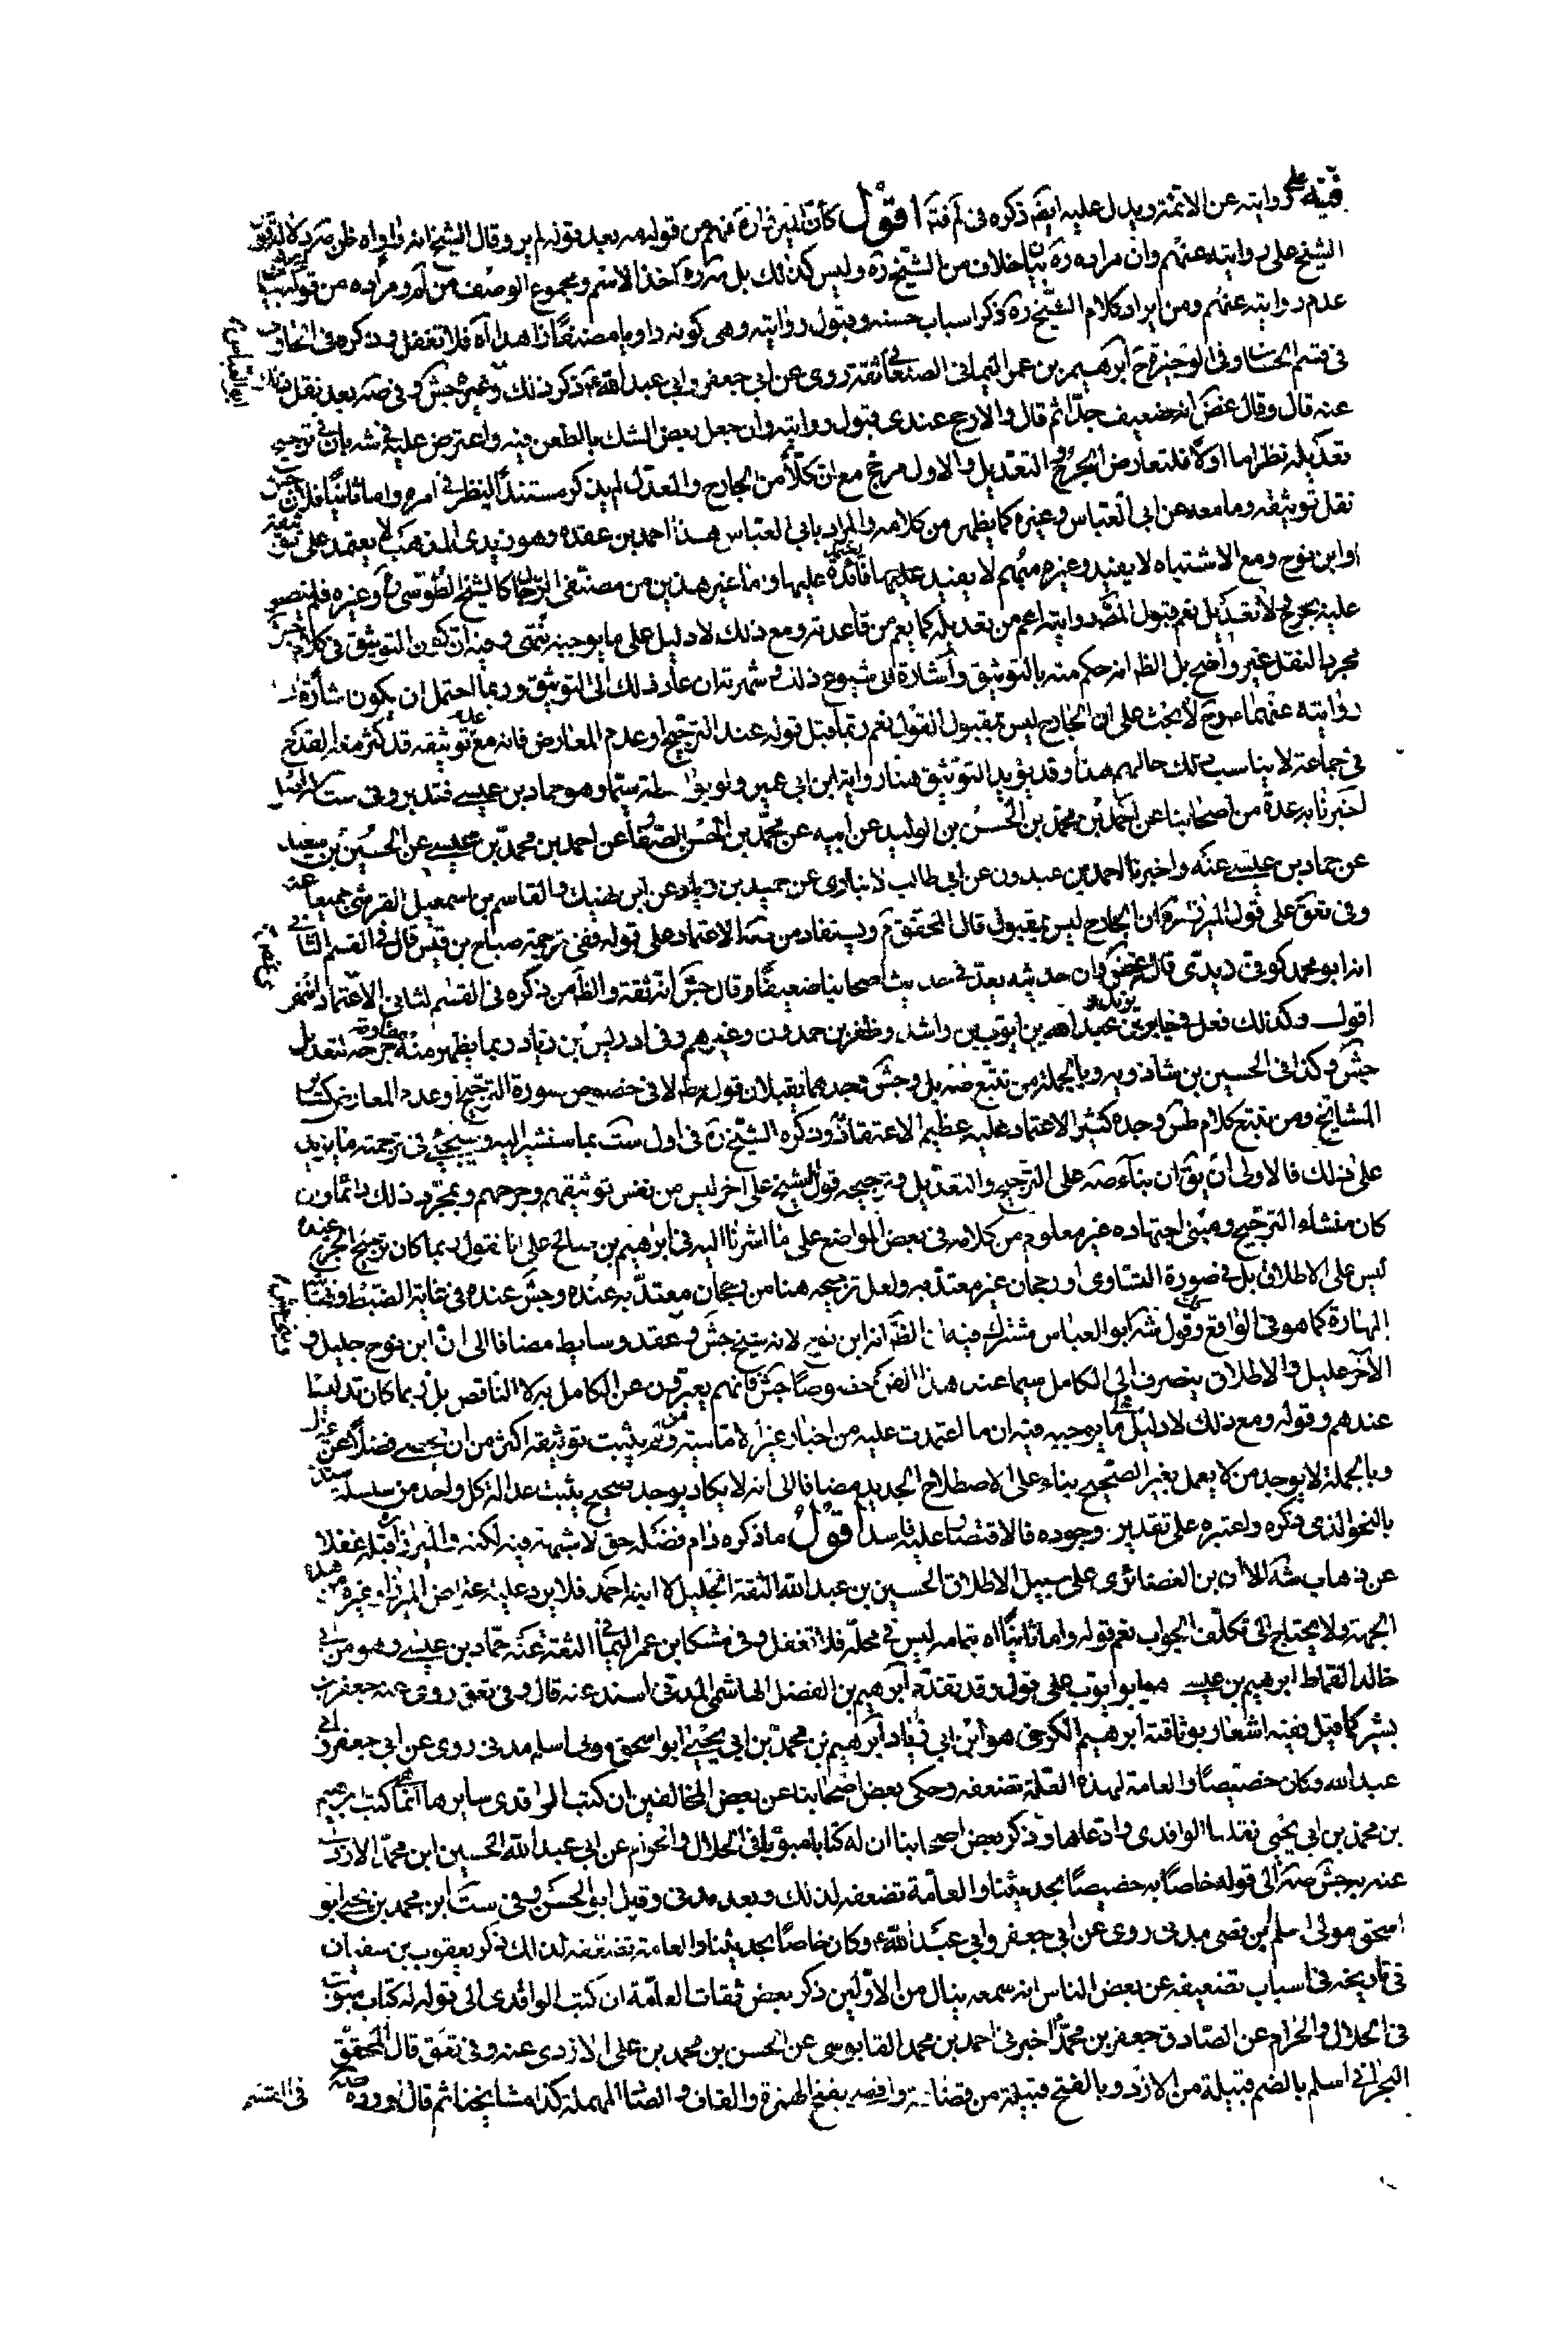 فيه على روايته عن الائمة ويدل عليه ايضا ذكره في لم فتد اقول كأن الميرزا ره فهم من قوله بعيد قوله وقال الشيخ
الشيخ على روايته عنهم وان مراده ره بيان خلاف من الشيخ ره وليس كذلك بل مراده اخذ الاسم ومجموع الوصف من لم ومراده من قوله
عدم روايته عنهم ومن ايراد كلام الشيخ ره ذكر اسباب حسنه وقبول روايته وهي كونه راويا مصنفا هذا اه فلا تغفل وذكره في الحاوي
في قسم الحسان وفي الوجيزة ح ابرهيم بن عمر اليماني الصنعاني ثقة روى عن ابي جعفر وابي عبد الله ع ذكر ذلك وغيره جش وفي صه بعد نقل ذلك
عنه قال وقال غض انه ضعيف جدا ثم قال والارجح عندي قبول روايته وان حصل بعض الشك بالطعن فيه واعترض عليه شه بان في ترجيح
تعديله نظر اما اولا فلتعارض الجرح والتعديل والاول مرجح مع ان كلا من الجارح والمعدل لم يذكر مستندا لينظر في امره واما ثانيا فلان جش
نقل توثيقه وما معه عن ابي العباس وغيره كما يظهر من كلامه والمراد بابي العباس هذا احمد بن عقدة وهو زيدي المذهب لا يعتمد على توثيقه
او ابن نوح ومع الاشتباه لا يفيد وغيره مبهم لا يفيد فائدة يعتمد عليها واما غير هذين من مصنفي الرجال كالشيخ الطوسي وغيره فلم ينصوا
عليه بجرح ولا تعديل نعم قبول المصنف روايته اعم من تعديله كما يعلم من قاعدته ومع ذلك لا دليل على ما يوجبه انتهى وفيه ان كون التوثيق في كلام جش
مجرد النقل غير واضح بل الظ انه حكم منه بالتوثيق واشارة الى شيوع ذلك وشهرته ان عاد ذلك الى التوثيق وربما احتمل ان يكون اشارة الى
روايته عنهما ع وح لا بحث على ان الجارح ليس بمقبول القول نعم ربما قبل قوله عند الترجيح او عدم المعارض فانه مع توثيقه قد كثر منه القدح
في جماعة لا يناسب ذلك حالهم هذا وقد يؤيد التوثيق هنا رواية ابن ابي عمير ولو بواسطة سيما وهو حماد بن عيسى فتدبر وفي ست له اصل
اخبرنا به عدة من اصحابنا عن احمد بن محمد بن الحسن بن الوليد عن ابيه عن محمد بن الحسن الصفار عن احمد بن محمد بن عيسى عن الحسين بن سعيد
عن حماد بن عيسى عنه واخبرنا احمد بن عبدون عن ابي طالب الانباري عن حميد بن زياد عن ابن نهيك والقاسم بن اسمعيل القرشي جميعا عنه
وفي تعق على قول الميرزا ره ان الجارح ليس بمقبول قال المحقق م د ويستفاد من صه الاعتماد على قوله ففي ترجمة صباح بن قيس قال في القسم الثاني
انه ابو محمد كوفي زيدي قال غض ان حديثه يعد في حديث اصحابنا ضعيفا وقال جش انه ثقة والظ ان ذكره في القسم الثاني لاعتماد
اقول وكذلك فعل في جابر بن يزيد وعبد الله بن ايوب بن راشد وظفر بن حمدون وغيرهم وفي ادريس بن زياد ربما يظهر منه مقاومة جرحه لتعديل
جش وكذا في الحسين بن شاذويه وبالجملة من تتبع صه بل وجش وجدهما يقبلان قوله مطلقا لا في خصوص صورة الترجيح او عدم المعارض كساير
المشايخ ومن تتبع كلام طس وجده كثير الاعتماد عليه عظيم الاعتقاد وذكره الشيخ ره في اول ست بما سنشير اليه وسيجيء في ترجمته ما يزيد
على ذلك فالاولى ان يق ان بناء صه على الترجيح والتعديل وترجيحه قول الشيخ على اخر ليس من نفس توثيقهم وجرحهم وبمجرد ذلك دائما وان
كان منشاء الترجيح ومبنى اجتهاده غير معلوم من كلامه في بعض المواضع على ما اشرنا اليه في ابرهيم بن صالح على انا نقول ربما كان ترجيح الجرح عنده
ليس على الاطلاق بل في صورة التساوي او رجحان غير معتد به ولعل ترجيحه هنا من رجحان معتد به عنده وجش عنده في غاية الضبط ونهاية
المهارة كما هو في الواقع وقول شه ابو العباس مشترك فيه ان الظ انه ابن نوح لانه شيخ جش وعقدة وسايط مضافا الى ان ابن نوح جليل و
الاخر عليل والاطلاق ينصرف الى الكامل سيما عند هذا الفن خصوصا جش فانهم يعبرون عن الكامل به لا الناقص بل ربما كان تدليسا
عندهم وقوله ومع ذلك لا دليل على ما يوجبه فيه ان ما اعتمدت عليه من اخبار غير الامامية ومن لم يثبت توثيقه اكثر من ان يحصى فضلا عن غيرك
وبالجملة لا يوجد من لا يعمل بغير الصحيح بناء على الاصطلاح الجديد مضافا الى انه لا يكاد يوجد صحيح يثبت عدالة كل واحد من سلسلة سنده
بالنحو الذي ذكره واعتبره على تقدير وجوده فالاقتصار عليه فاسد اقول ما ذكره دام فضله حق لا شبهة فيه لكنه والميرزا قبله غفلا
عن ذهاب شه الى ان ابن الغضائري على سبيل الاطلاق الحسين بن عبد الله الثقة الجليل لا ابنه احمد فلا يرد عليه اعتراض الميرزا وغيره من هذه
الجهة ولا يحتاج الى تكلف الجواب نعم قوله واما ثانيا اه بتمامه ليس في محله فلا تغفل وفي مشكا ابن عمر اليماني الثقة عنه حماد بن عيسى وهو عن ابي
خالد القماط ابرهيم بن عيسى هو ابو ايوب على قول وقد تقدم ابرهيم بن الفضل الهاشمي المدني اسند عنه قال وفي تعق روى عنه جعفر بن
بشير كما قيل ففيه اشعار بوثاقته ابرهيم الكرخي هو ابن ابي زياد ابرهيم بن محمد بن ابي يحيى ابو اسحق مولى اسلم مدني روى عن ابي جعفر وابي
عبد الله وكان خصيصا والعامة لهذه العلة تضعفه وحكى بعض اصحابنا عن بعض المخالفين ان كتب الواقدي سايرها انما هي كتب ابرهيم
بن محمد بن ابي يحيى نقلها الواقدي وادعاها وذكر بعض اصحابنا ان له كتابا مبوبا في الحلال والحرام عن ابي عبد الله الحسين ابن محمد الازدي
عنه به جش صه الى قوله خاصا به خصيصا بحديثنا والعامة تضعفه لذلك وبعد مدني وقيل ابو الحسن وفي ست ابن محمد بن يحيى ابو
اسحق مولى اسلم بن قصي مدني روى عن ابي جعفر وابي عبد الله ع وكان خاصا بحديثنا والعامة تضعفه لذلك ذكر يعقوب بن سفيان
في تاريخه في اسباب تضعيفه عن بعض الناس انه سمعه ينال من الاولين ذكر بعض ثقات العامة ان كتب الواقدي الى قوله له كتاب مبوب
في الحلال والحرام عن الصادق جعفر بن محمد اخبرني احمد بن محمد القابوسي عن الحسن بن محمد بن علي الازدي عنه وفي تعق قال المحقق
البحراني اسلم بالضم قبيلة من الازد وبالفتح قبيلة من قضاعة وافصى بفتح الهمزة والقاف والصاد المهملة كذا مشايخنا ثم قال اورده صه
في القسم